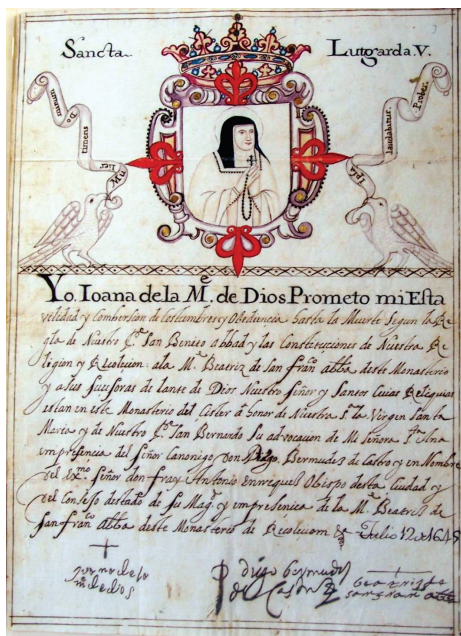 Sancta
Lutgarda V.
Mulier
timens
Dominum
Ipsa
laudabitur
Yo. Ioana de la M.e de Dios Prometo mi Esta
velidad y Combersion de costumbres y Obediencia hasta la Muerte Segun la Re
gla de Nuestro P.e San Benito Abbad y las Constituciones de Nuestra Re
ligion y Recolecion. a la M.e Beatriz de San fran.co abba deste Monasterio
y a sus subsesoras delante de Dios Nuestro Señor y Santos Cuias Reliquias
estan en este Monasterio del Cister a honor de Nuestra S.ra la Virgen Santa
Maria y de Nuestro P.e San Bernardo Su advocacion de Mi Señora S.ta Ana
en presencia del Señor Canonigo Don Diego Bermudez de Castro y en Nombre
del Ex.mo Señor don fray Antonio enrriques Obispo desta Ciudad y
del Consejo de estado de su Mag.d y en presencia de la M.e Beatriz de
San fran.co abba deste Monasterio de Recolecion Julio 12 de 1645
de la
m.e de dios
diego bermudez
de Castro
beatriz de
san fran